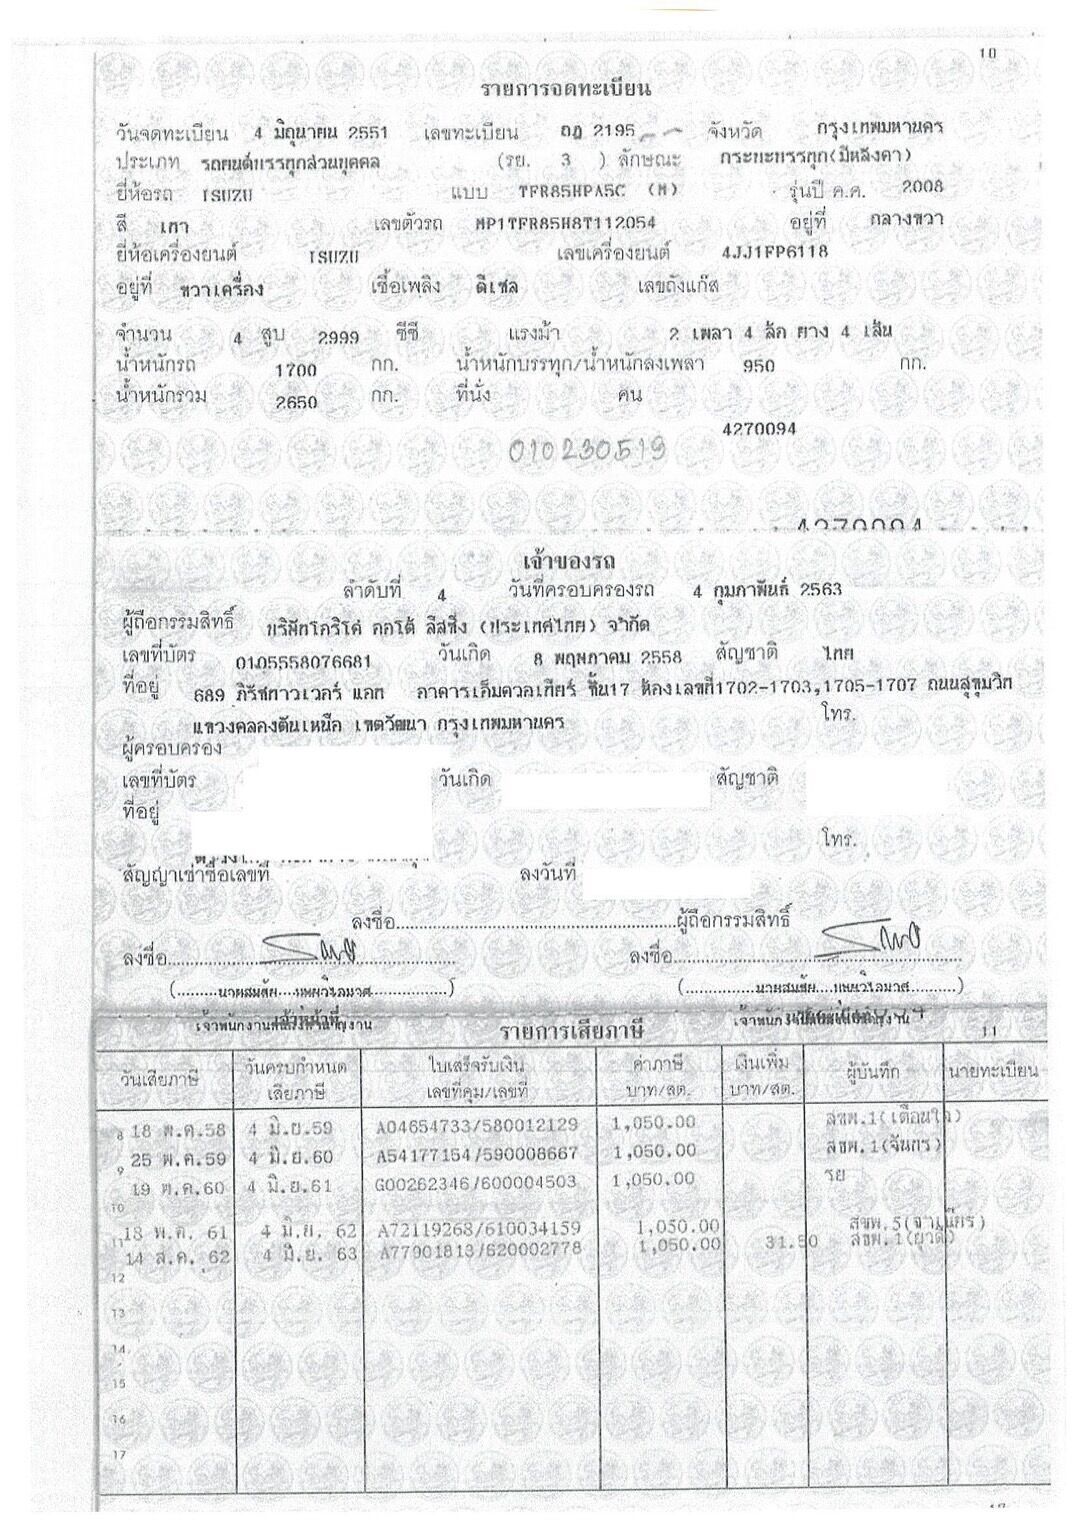 10
รายการจดทะเบียน
วันจดทะเบียน 4 มิถุนายน 2551 เลขทะเบียน ถฎ 2195 จังหวัด กรุงเทพมหานคร
ประเภท รถยนต์บรรทุกส่วนบุคคล (รย. 3 ) ลักษณะ กระบะบรรทุก(มีหลังคา)
ยี่ห้อรถ ISUZU แบบ TFR85HPA5C (M) รุ่นปี ค.ศ. 2008
สี เทา เลขตัวรถ MP1TFR85H8T112054 อยู่ที่ กลางขวา
ยี่ห้อเครื่องยนต์ ISUZU เลขเครื่องยนต์ 4JJ1FP6118
อยู่ที่ ขวาเครื่อง เชื้อเพลิง ดีเซล เลขถังแก๊ส
จำนวน 4 สูบ 2999 ซีซี แรงม้า 2 เพลา 4 ล้อ ยาง 4 เส้น
น้ำหนักรถ 1700 กก. น้ำหนักบรรทุก/น้ำหนักลงเพลา 950 กก.
น้ำหนักรวม 2650 กก. ที่นั่ง คน
4270094
010230519
4270094
เจ้าของรถ
ลำดับที่ 4 วันที่ครอบครองรถ 4 กุมภาพันธ์ 2563
ผู้ถือกรรมสิทธิ์ บริษัทโคริโค่ ออโต้ ลีสซิ่ง (ประเทศไทย) จำกัด
เลขที่บัตร 0105558076681 วันเกิด 8 พฤษภาคม 2558 สัญชาติ ไทย
ที่อยู่ 689 ภิรัชทาวเวอร์ แอท อาคารเอ็มควอเทียร์ ชั้น17 ห้องเลขที่1702-1703,1705-1707 ถนนสุขุมวิท
แขวงคลองตันเหนือ เขตวัฒนา กรุงเทพมหานคร โทร.
ผู้ครอบครอง
เลขที่บัตร วันเกิด สัญชาติ
ที่อยู่
โทร.
สัญญาเช่าซื้อเลขที่ ลงวันที่
ลงชื่อ............ผู้ถือกรรมสิทธิ์
ลงชื่อ............ ลงชื่อ............
(.........นายสมชัย.... ..........) (.........นายสมชัย.... ..........)
เจ้าหน้าที่
รายการเสียภาษี 11
วันเสียภาษี วันครบกำหนดเสียภาษี ใบเสร็จรับเงินเลขที่คุม/เลขที่ ค่าภาษีบาท/สต. เงินเพิ่มบาท/สต. ผู้บันทึก นายทะเบียน
8 18 พ.ค.58 4 มิ.ย.59 A04654733/580012129 1,050.00 สขพ.1(เตือนใจ)
9 25 พ.ค.59 4 มิ.ย.60 A54177154/590008667 1,050.00 สขพ.1(จันทร)
10 19 ต.ค.60 4 มิ.ย.61 G00262346/600004503 1,050.00 รย
11 18 พ.ค. 61 4 มิ.ย. 62 A72119268/610034159 1,050.00 สขพ.5
14 ส.ค. 62 4 มิ.ย. 63 A77901813/620002778 1,050.00 31.50 สขพ.1
12
13
14
15
16
17